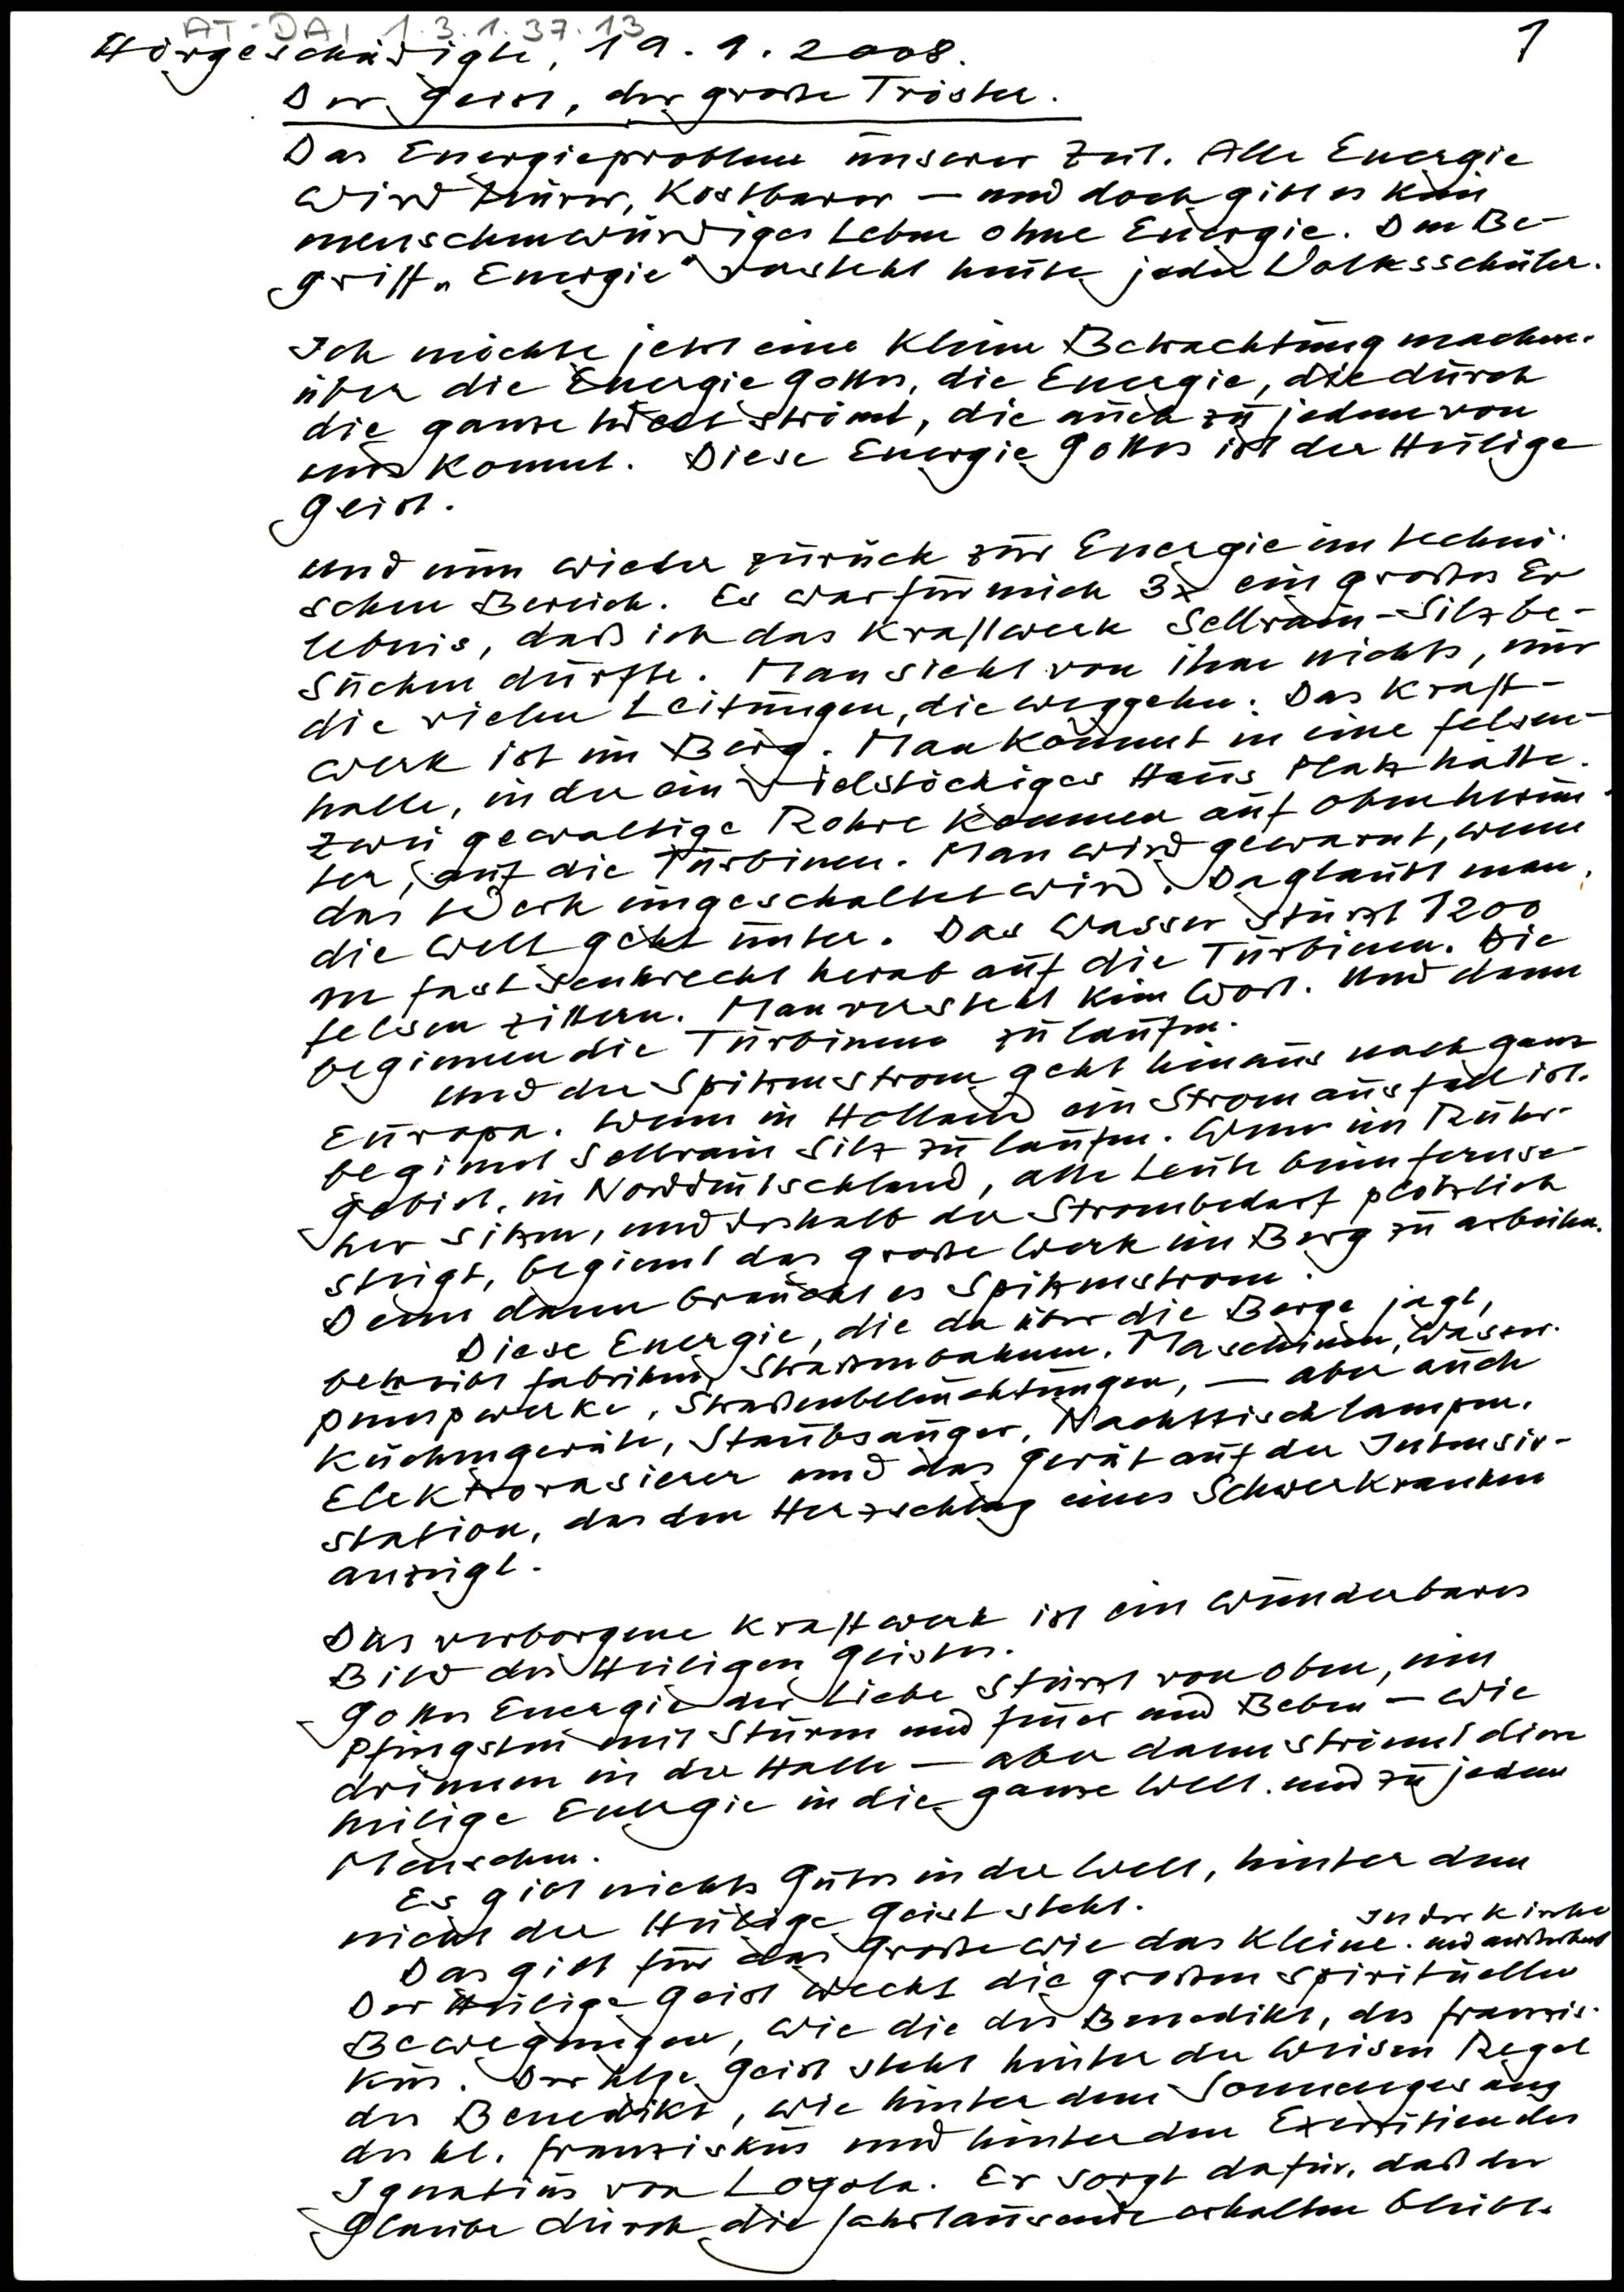 AT-DAI 1.3.1.37.13
1
Hörgeschädigte, 19.9.2008.
Der Geist, der große Tröster.
Das Energieproblem unserer Zeit. Alle Energie
wird teurer, kostbarer – und doch gibt es kein
menschenwürdiges Leben ohne Energie. Den Be-
griff „Energie" versteht heute jeder Volksschüler.
Ich möchte jetzt eine kleine Betrachtung machen.
über die Energie Gottes, die Energie, die durch
die ganze Welt strömt, die auch zu jedem von
uns kommt. Diese Energie Gottes ist der Heilige
Geist.
Und nun wieder zurück zur Energie im techni-
schen Bereich. Es war für mich 3x ein großes Er
lebnis, daß ich das Kraftwerk Sellrain-Silz be-
suchen durfte. Man sieht von ihm nichts, nur
die vielen Leitungen, die weggehen. Das Kraft-
werk ist im Berg. Man kommt in eine Felsen-
halle, in der ein vielstöckiges Haus Platz hätte.
Zwei gewaltige Rohre kommen auf oben herun-
ter, auf die Turbinen. Man wird gewarnt, wenn
das Werk eingeschaltet wird. Da glaubt man,
die Welt geht unter. Das Wasser stürzt 1200
m fast senkrecht herab auf die Turbinen. Die
Felsen zittern. Man versteht kein Wort. Und dann
beginnen die Turbinen zu laufen.
Und der Spitzenstrom geht hinaus nach ganz
Europa. Wenn in Holland ein Stromausfall ist.
beginnt Sellrain Silz zu laufen. Wenn im Ruhr-
gebiet, in Norddeutschland, alle Leute beim Fernse-
her sitzen, und deshalb der Strombedarf plötzlich
steigt, beginnt das große Werk im Berg zu arbeiten.
Denn dann braucht es Spitzenstrom.
Diese Energie, die da über die Berge jagt,
betreibt Fabriken, Straßenbahnen. Maschinen, Wasser-
pumpwerke, Straßenbeleuchtungen, – aber auch
Küchengeräte, Staubsauger, Nachttischlampen,
Elektrorasierer und das Gerät auf der Intensiv-
station, das den Herzschlag eines Schwerkranken
anzeigt.
Das verborgene Kraftwerk ist ein wunderbares
Bild des Heiligen Geistes.
Gottes Energie der Liebe stürzt von oben, wie
Pfingsten mit Sturm und Feuer und Beben – wie
drinnen in der Halle – aber dann strömt diese
heilige Energie in die ganze Welt. und zu jedem
Menschen.
Es gibt nichts Gutes in der Welt, hinter dem
nicht der Heilige Geist steht.
Das gilt für das Große wie das Kleine. In der Kirche und außerhalb
Der Heilige Geist weckt die großen spirituellen
Bewegungen, wie die des Benedikt, des Franzis-
kus. Der hlge Geist steht hinter der weisen Regel
des Benedikt, wie hinter dem Sonnengesang
des hl. Franziskus und hinter den Exerzitien des
Ignatius von Loyola. Er sorgt dafür, daß der
Glaube durch die Jahrtausende erhalten bleibt.